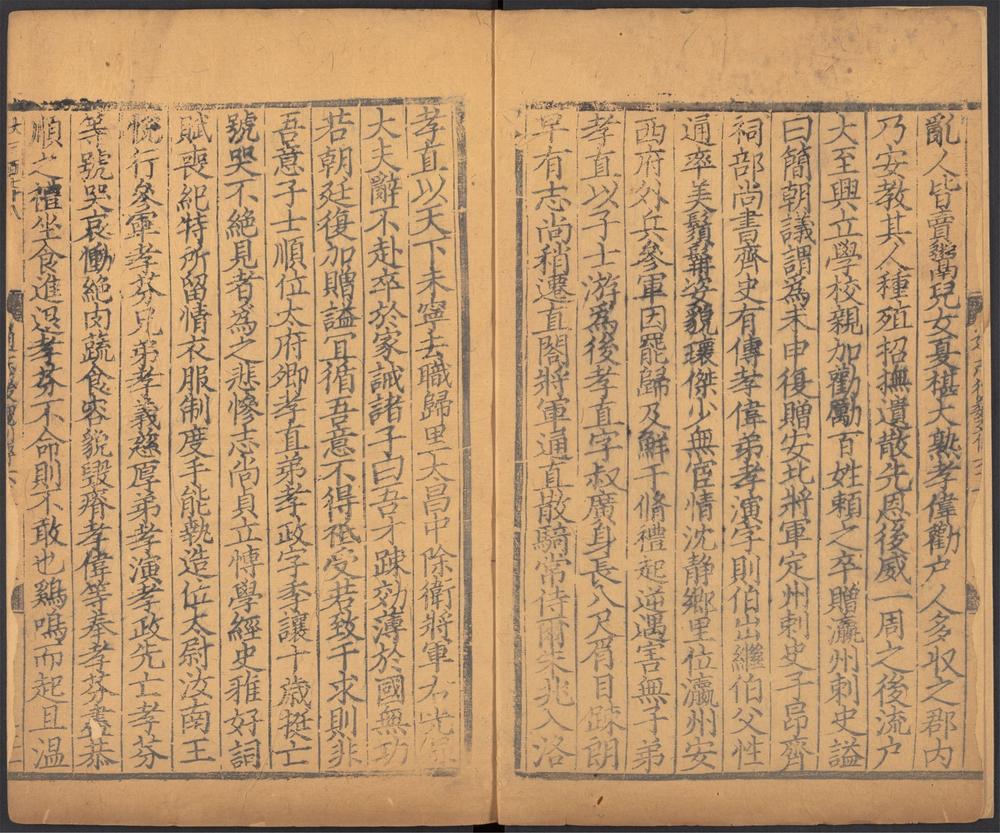 亂人皆賣鬻兒女夏椹大熟孝偉勸戶人多収之郡内
乃安教其人種殖招撫遺散先恩後威一周之後流户
大至興立學校親加勸勵百姓賴之卒贈瀛州刺史謚
曰簡朝議謂為未申復贈安北將軍定州刺史子昂齊
祠部尚書齊史有傳孝偉弟孝演字則伯出繼伯父性
通率美鬚髯姿貌瓌傑少無宦情沈静鄉里位瀛州安
西府外兵參軍因罷歸及鮮于脩禮起逆遇害無子弟
孝直以子士游為後孝直字叔廣身長八尺眉目踈朗
早有志尚稍遷直閣將軍通直散騎常侍爾朱兆入洛
孝直以天下未寧去職歸里太昌中除衛將軍右光禄
大夫辭不赴卒於家誡諸子曰吾才踈効薄於國無功
若朝廷復加贈謚宜循吾意不得祗受若致干求則非
吾意子士順位太府卿孝直弟孝政字季讓十歲挺亡
號哭不絶見者為之悲慘志尚貞立愽學經史雅好詞
賦喪紀特所留情衣服制度手能執造位太尉汝南王
悦行參軍孝芬兄弟孝義慈厚弟孝演孝政先亡孝芬
等號哭哀慟絶肉蔬食容貌毀瘠孝偉等奉孝芬盡恭
順之禮坐食進退孝芬不命則不敢也鷄鳴而起且温